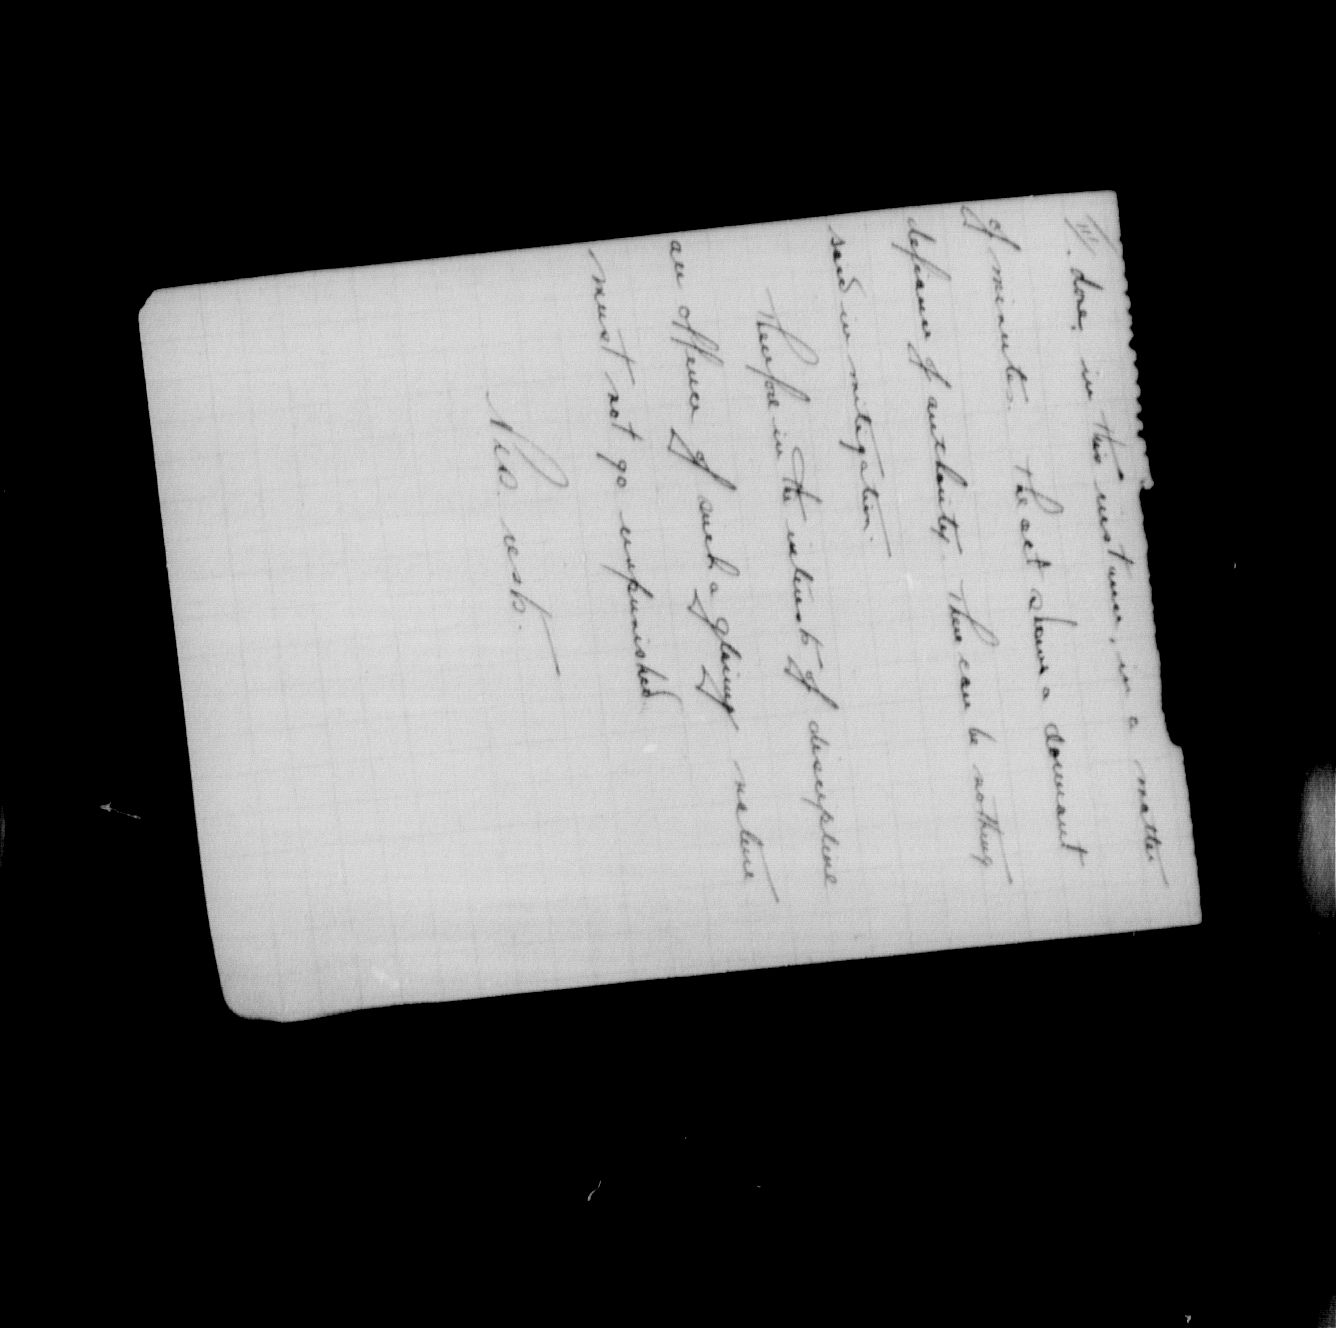 III. done, in this instance, in a matter
of minutes. The act shows a dormant
defiance of authority. There can be nothing
said in mitigation.
Therefore in the interests of discipline
an offence of such a glaring nature
must not go unpunished
Pros. rests.